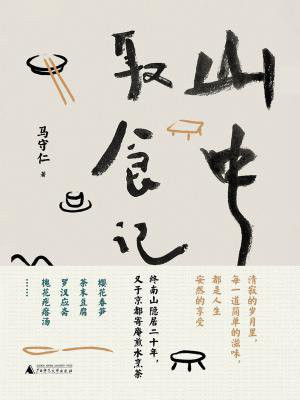 山中
取食记
马守仁 著
清寂的岁月里，
每一道简单的滋味，
都是人生
安然的享受
终南山隐居二十年，
又于京都寄庵煎水烹茶
樱花春笋
茶末豆腐
罗汉应斋
槐花疙瘩汤
……
广西师范大学出版社